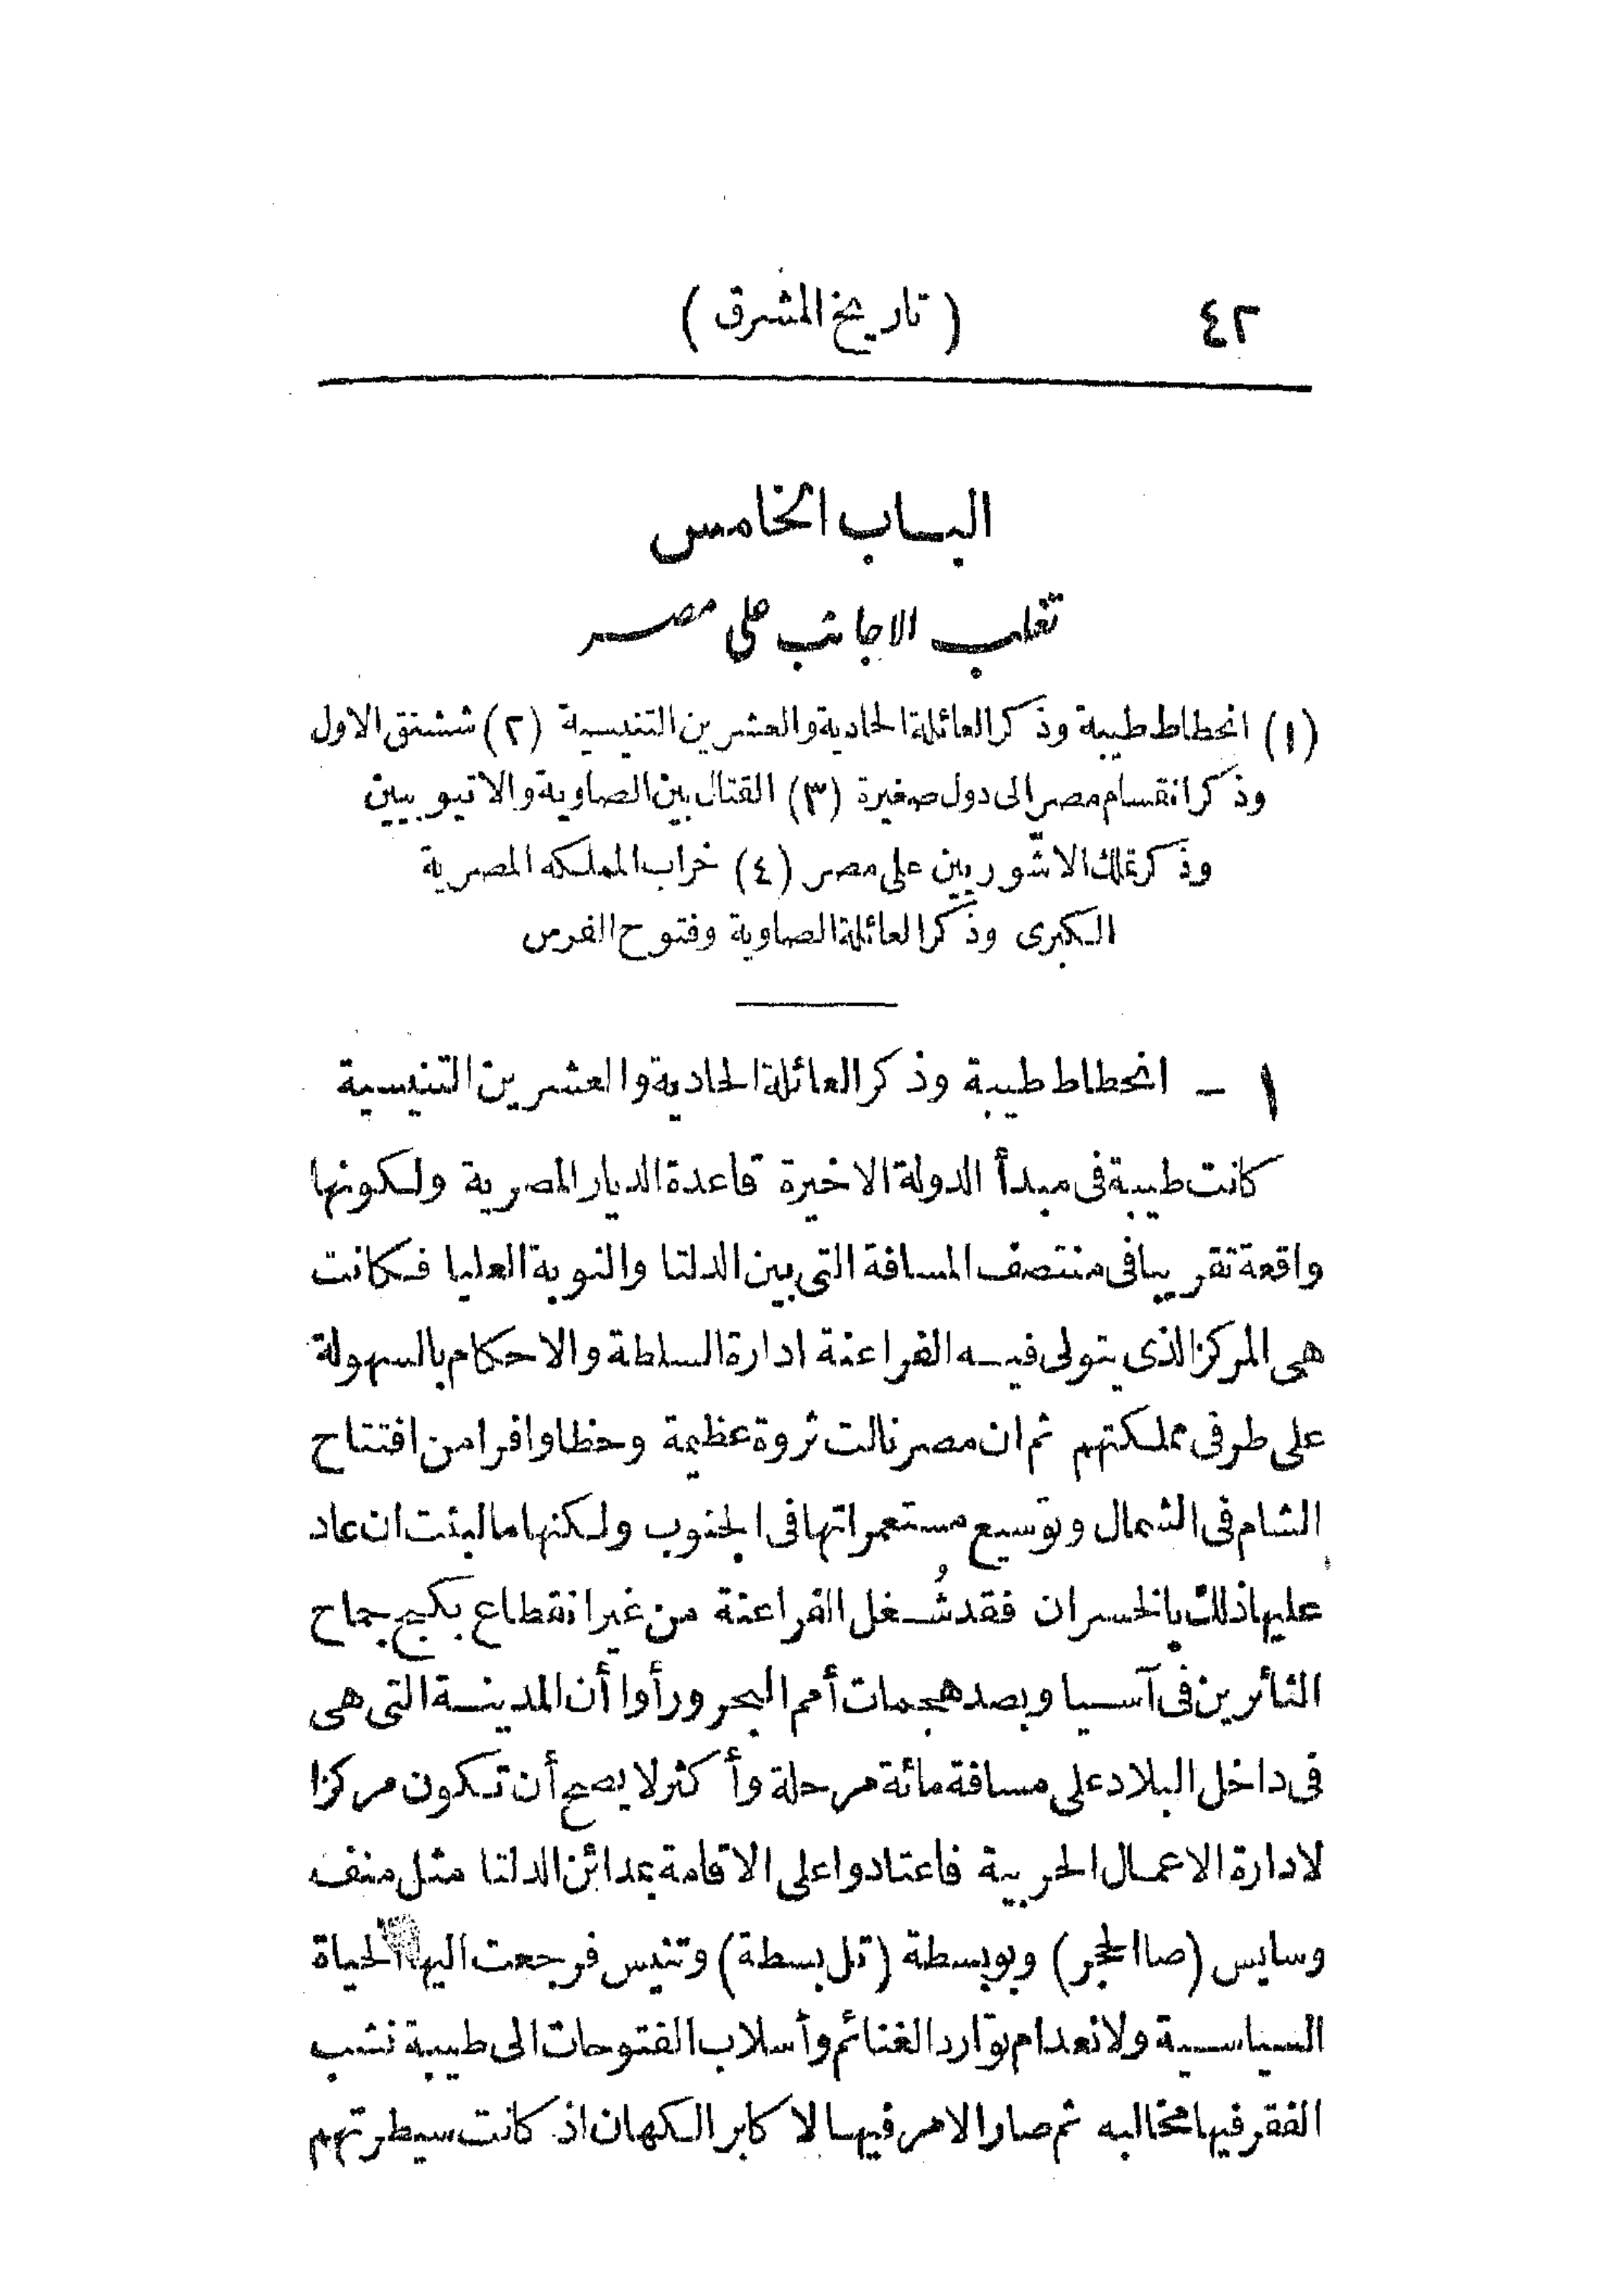 ٤٢
( تاريخ المشرق )
البـاب الخامس
تغلب الاجانب على مصر
(١) انحطاط طيبة وذكر العائلة الحادية والعشرين التنيسية (٢) ششنق الاول
وذكر انقسام مصر الى دول صغيرة (٣) القتال بين الصاوية والاتيوبيين
وذكر تملك الاشّوريين على مصر (٤) خراب المملكه المصرية
الكبرى وذكر العائلة الصاوية وفتوح الفرس
١ - انحطاط طيبة وذكر العائلة الحادية والعشرين التنيسية
كانت طيبة فى مبدأ الدولة الاخيرة قاعدة الديار المصرية ولكونها
واقعة تقريبا فى منتصف المسافة التى بين الدلتا والنوبة العليا فكانت
هى المركز الذى يتولى فيـه الفراعنة ادارة السلطة والاحكام بالسهولة
على طرفى مملكتهم ثم ان مصر نالت ثروة عظيمة وحظا وافرا من افتتاح
الشام فى الشمال وتوسيع مستعمراتها فى الجنوب ولكنها ما لبثت ان عاد
عليها ذلك بالخسران فقد شُغل الفراعنة من غير انقطاع بكبح جماح
الثائرين فى آسـيا وبصد هجمات أمم البحر ورأوا أن المدينـة التى هى
فى داخل البلاد على مسافة مائة مرحلة وأكثر لا يصح أن تكون مركزا
لادارة الاعمال الحربية فاعتادوا على الاقامة بمدائن الدلتا مثل منف
وسايس (صا الحجر) وبوبسطة (تل بسطة) وتنيس فرجعت اليها الحياة
السياسية ولانعدام توارد الغنائم وأسلاب الفتوحات الى طيبة نشب
الفقر فيها مخالبه ثم صار الامر فيها لاكابر الكهان اذ كانت سيطرتهم